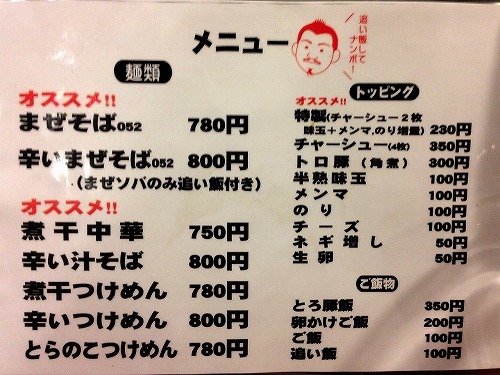 メニュー
追い飯して
ナンボ!
麺類
オススメ!!
まぜそば052 780円
辛いまぜそば052 800円
(まぜソバのみ追い飯付き)
オススメ!!
煮干中華 750円
辛い汁そば 800円
煮干つけめん 780円
辛いつけめん 800円
とらのこつけめん 780円
トッピング
オススメ!!
特製(チャーシュー2枚
味玉+メンマ,のり増量) 230円
チャーシュー(4枚) 350円
トロ豚(角煮) 300円
半熟味玉 100円
メンマ 100円
のり 100円
チーズ 100円
ネギ増し 50円
生卵 50円
ご飯物
とろ豚飯 350円
卵かけご飯 200円
ご飯 100円
追い飯 100円